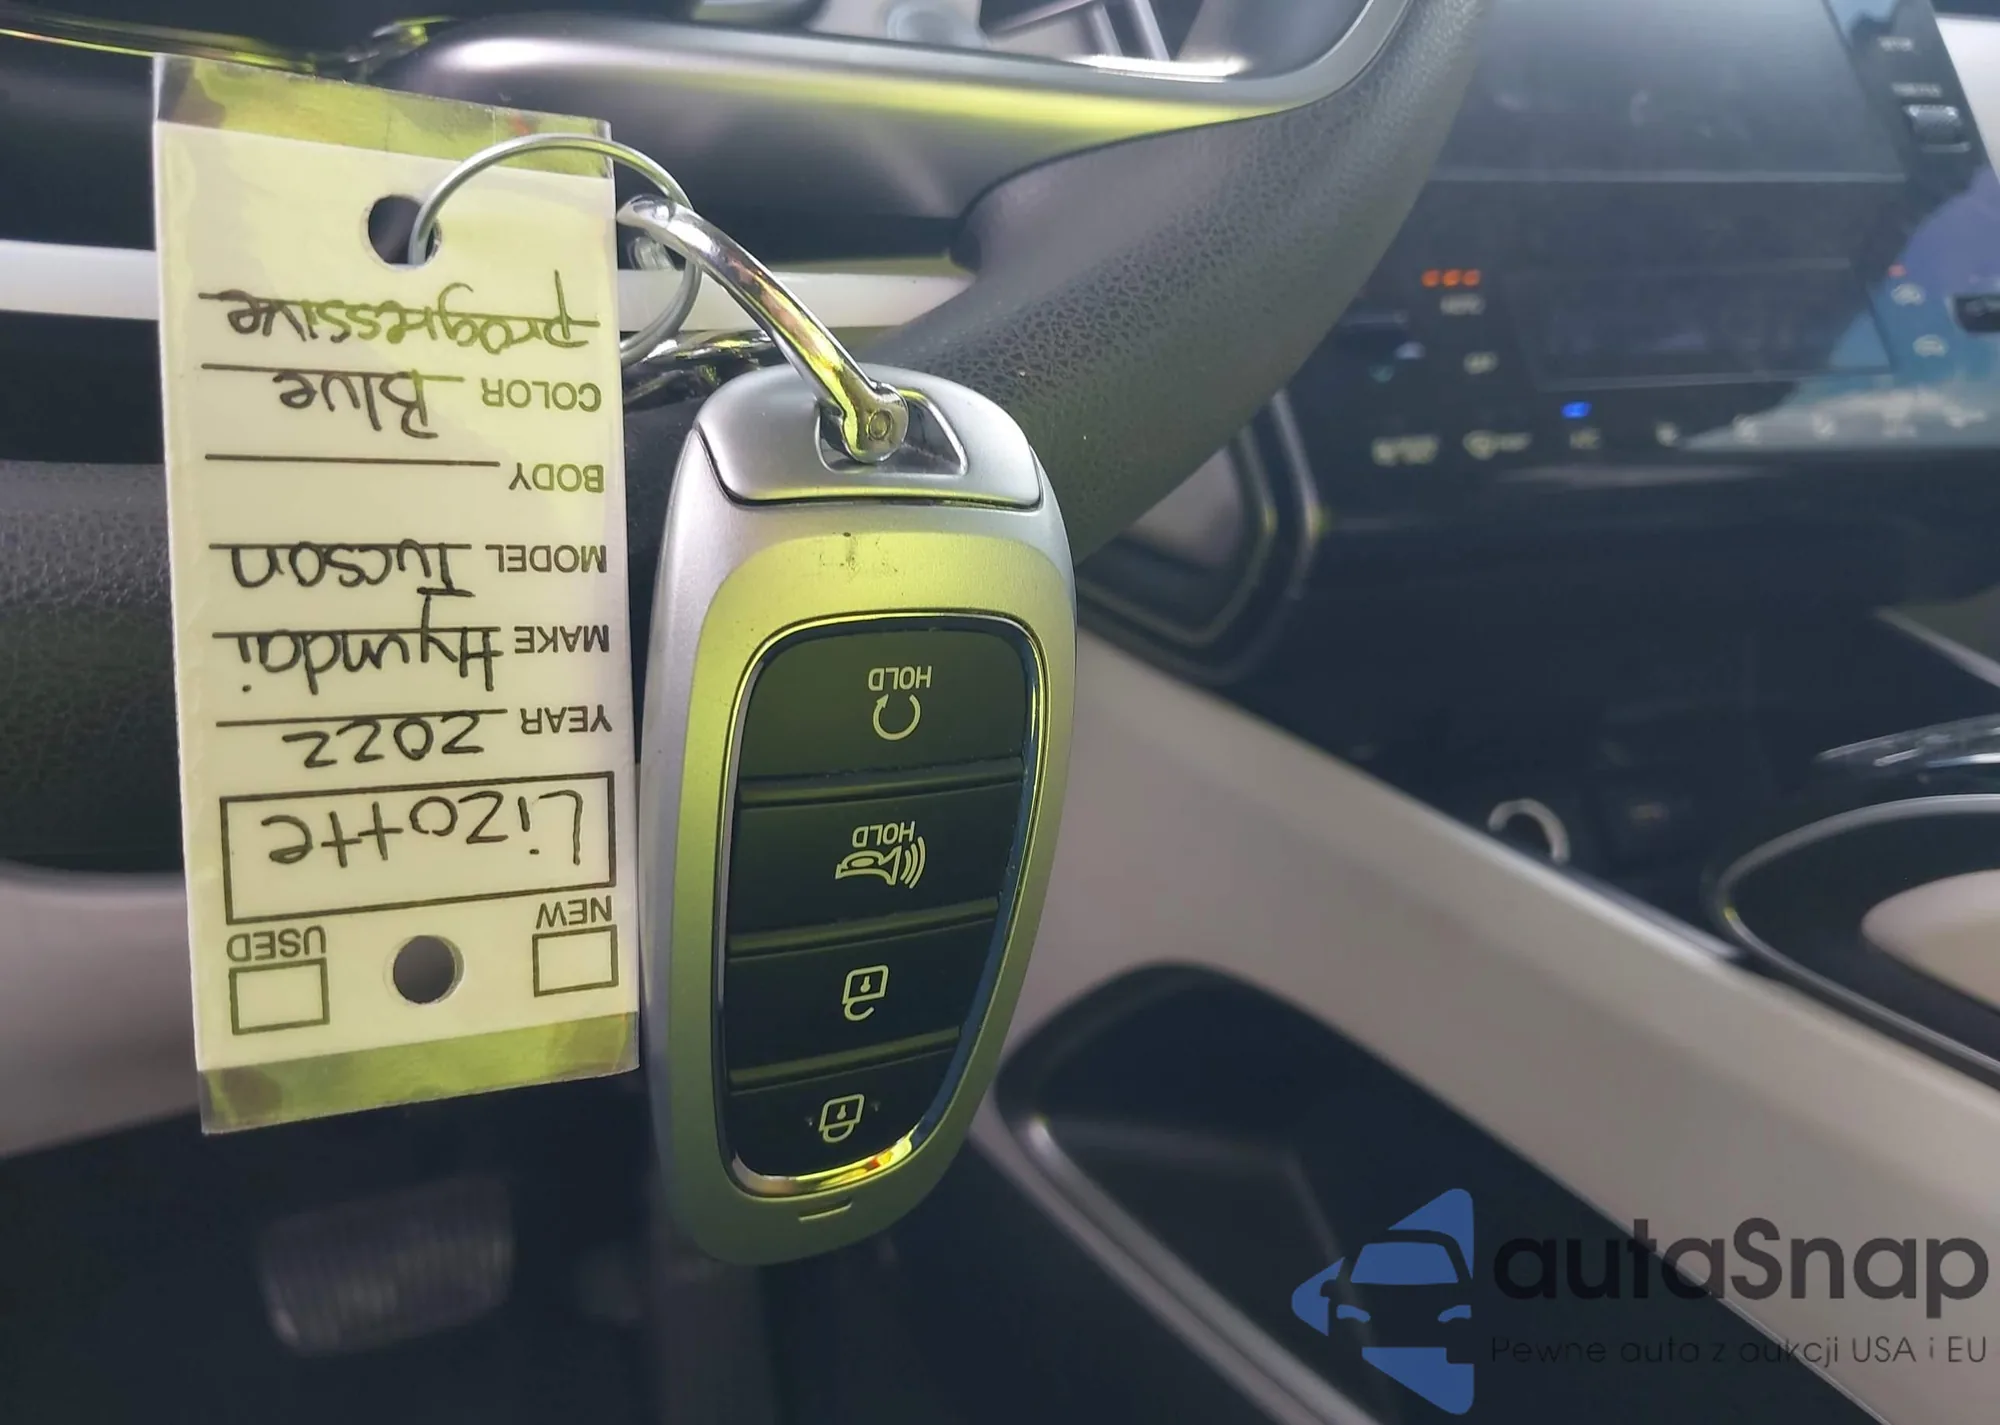 USED
NEW
Lizotte
YEAR 2022
MAKE Hyundai
MODEL Tucson
BODY
COLOR Blue
progressive
HOLD
HOLD
autaSnap
Pewne auto z aukcji USA i EU